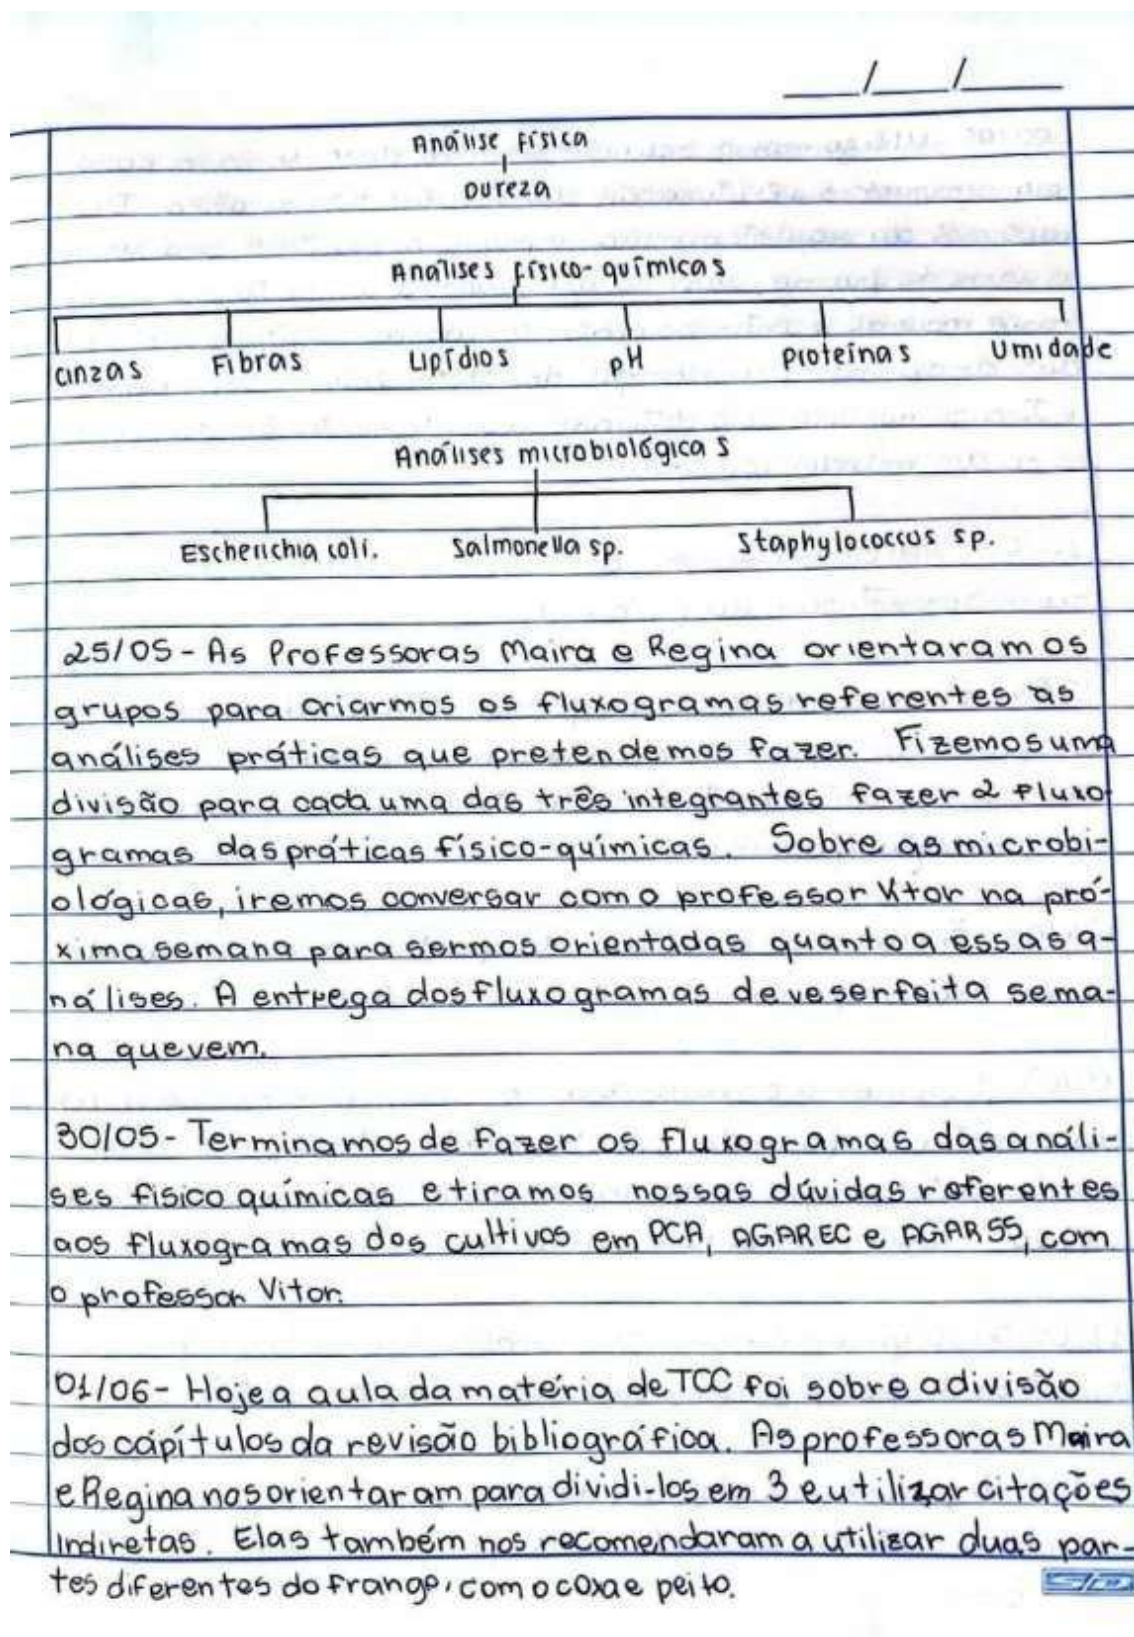 ___/___/___
Análise física
Dureza
Análises físico-químicas
cinzas Fibras Lipídios pH proteínas Umidade
Análises microbiológicas
Escherichia coli. Salmonella sp. Staphylococcus sp.
25/05 - As Professoras Maira e Regina orientaram os
grupos para criarmos os fluxogramas referentes as
análises práticas que pretendemos fazer. Fizemos uma
divisão para cada uma das três integrantes fazer 2 fluxo
gramas das práticas físico-químicas. Sobre as microbi-
ológicas, iremos conversar com o professor Vitor na pró-
xima semana para sermos orientadas quanto a essas a-
nálises. A entrega dos fluxogramas deve ser feita sema-
na que vem.
30/05 - Terminamos de fazer os fluxogramas das análi-
ses físico químicas e tiramos nossas dúvidas referentes
aos fluxogramas dos cultivos em PCA, AGAR EC e AGAR SS, com
o professor Vitor.
01/06 - Hoje a aula da matéria de TCC foi sobre a divisão
dos cápítulos da revisão bibliográfica. As professoras Maira
e Regina nos orientaram para dividi-los em 3 e utilizar citações
indiretas. Elas também nos recomendaram a utilizar duas par-
tes diferentes do frango, como coxa e peito.